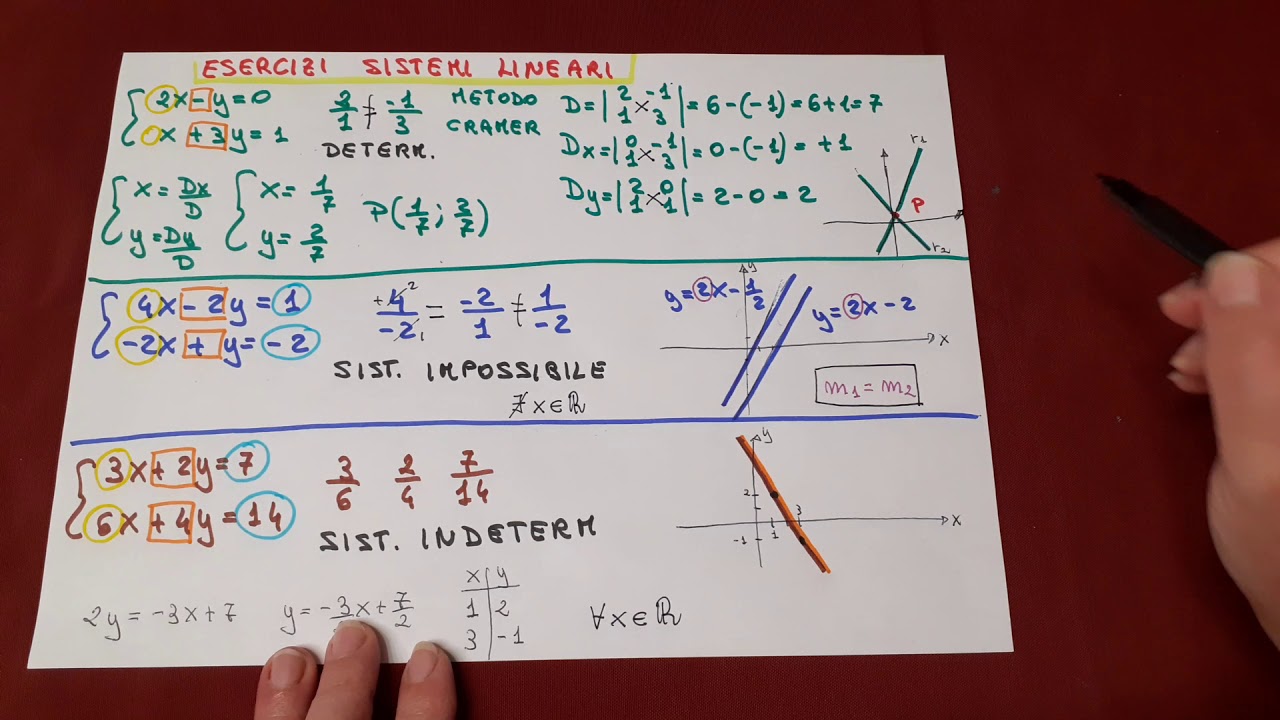 ESERCIZI SISTEMI LINEARI
{ 2x - y = 0
0x + 3y = 1
2/1 ≠ -1/3
DETERM.
METODO
CRAMER
D = |2 -1; 1 3| = 6 - (-1) = 6 + 1 = 7
Dx = |0 -1; 1 3| = 0 - (-1) = +1
Dy = |2 0; 1 1| = 2 - 0 = 2
{ x = Dx/D
y = Dy/D
{ x = 1/7
y = 2/7
P(1/7; 2/7)
r1
P
r2
{ 4x - 2y = 1
-2x + y = -2
+4²/-2₁ = -2/1 ≠ 1/-2
SIST. IMPOSSIBILE
∄ x ∈ ℝ
y
y = 2x - 1/2
y = 2x - 2
x
m1 = m2
{ 3x + 2y = 7
6x + 4y = 14
3/6 2/4 7/14
SIST. INDETERM
y
2
3
x
1
-1
2y = -3x + 7
y = -3x + 7/2
x y
1 2
3 -1
∀x ∈ ℝ